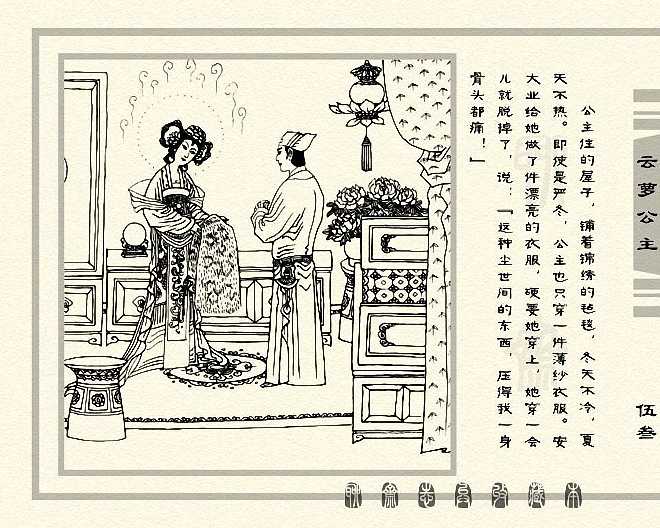 云萝公主
伍叁
公主住的屋子，铺着锦绣的毡毯，冬天不冷，夏
天不热。即使是严冬，公主也只穿一件薄纱衣服。安
大业给她做了件漂亮的衣服，硬要她穿上，她穿一会
儿就脱掉了，说：「这种尘世间的东西，压得我一身
骨头都痛！」